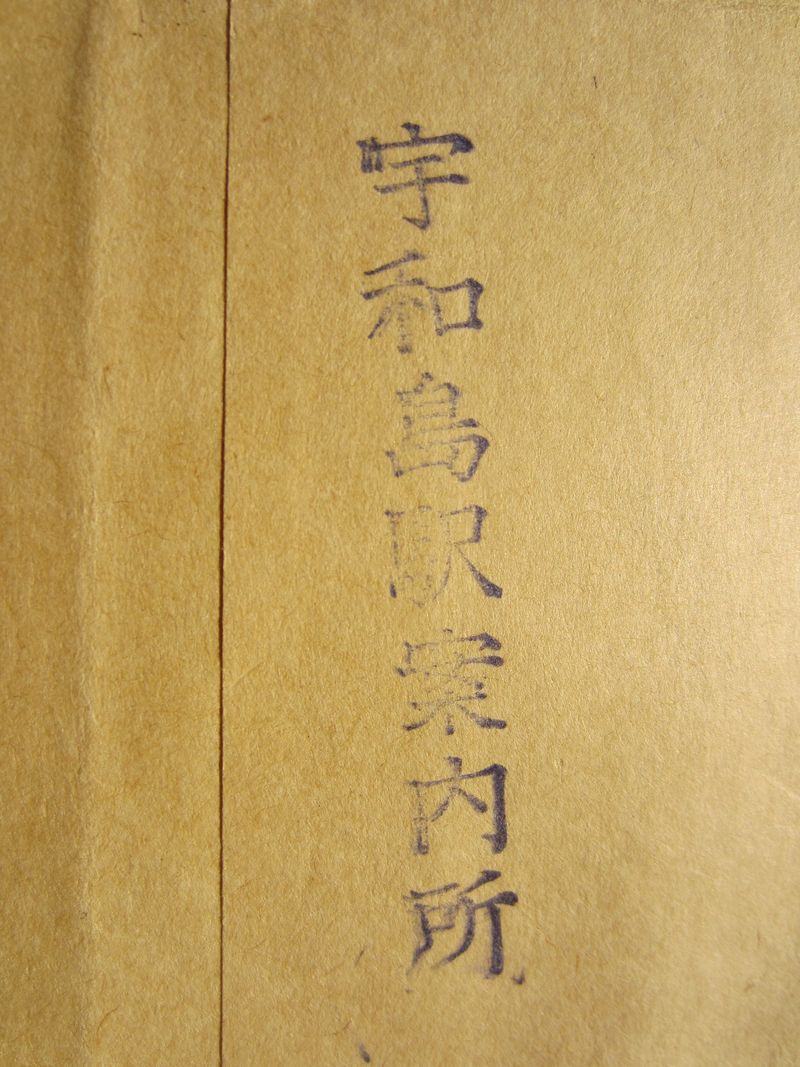 宇和島駅案内所